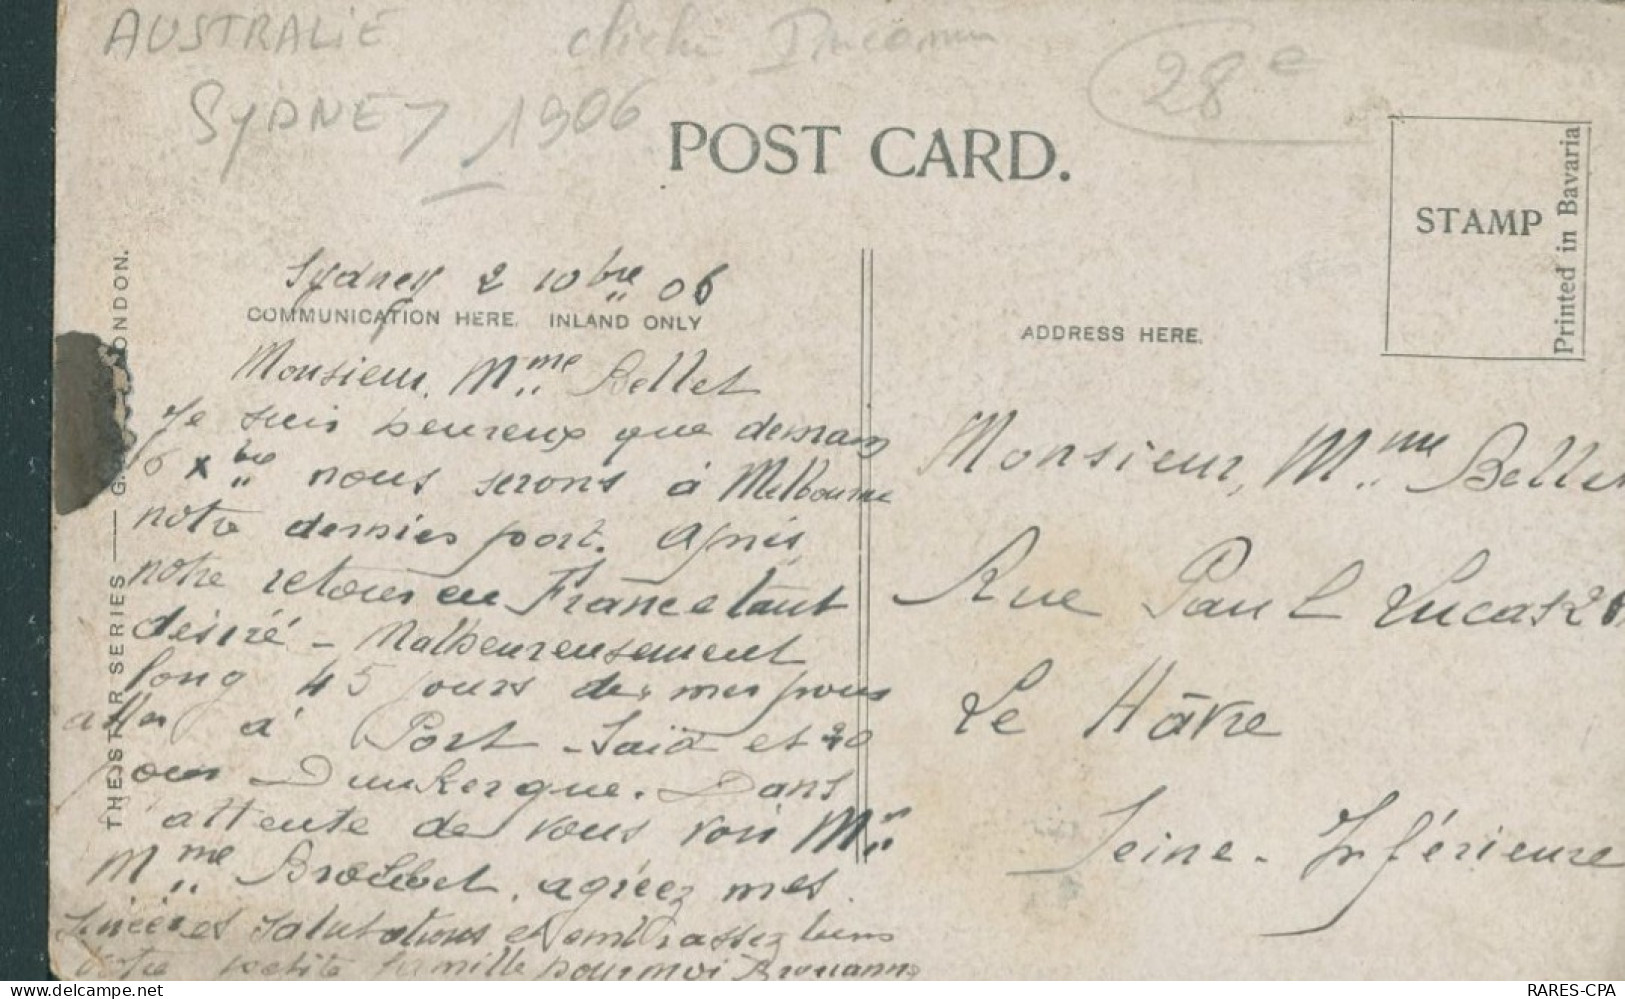 AUSTRALIE
cliché Inconnu
28e
SYDNEY 1906
POST CARD.
STAMP
Printed in Bavaria
THE STAR SERIES — G. ONDON.
Sydney 2 10bre 06
COMMUNICATION HERE. INLAND ONLY
Monsieur, Mme Bellet
Je suis heureux que demain
6 xbre nous serons à Melbourne
notre dernier port. Après
notre retour en France tant
désiré – Malheureusement
long 45 jours de mer pour
aller à Port-Saïd et 20
pour Dunkerque. Dans
attente de vous voir Mr
Mme, agréez mes
Sincères Salutations et embrassez bien
votre petite famille pour moi
ADDRESS HERE.
Monsieur, Mme Bellet
Rue Paul Lucas
Le Hâvre
Seine-Inférieure
RARES-CPA